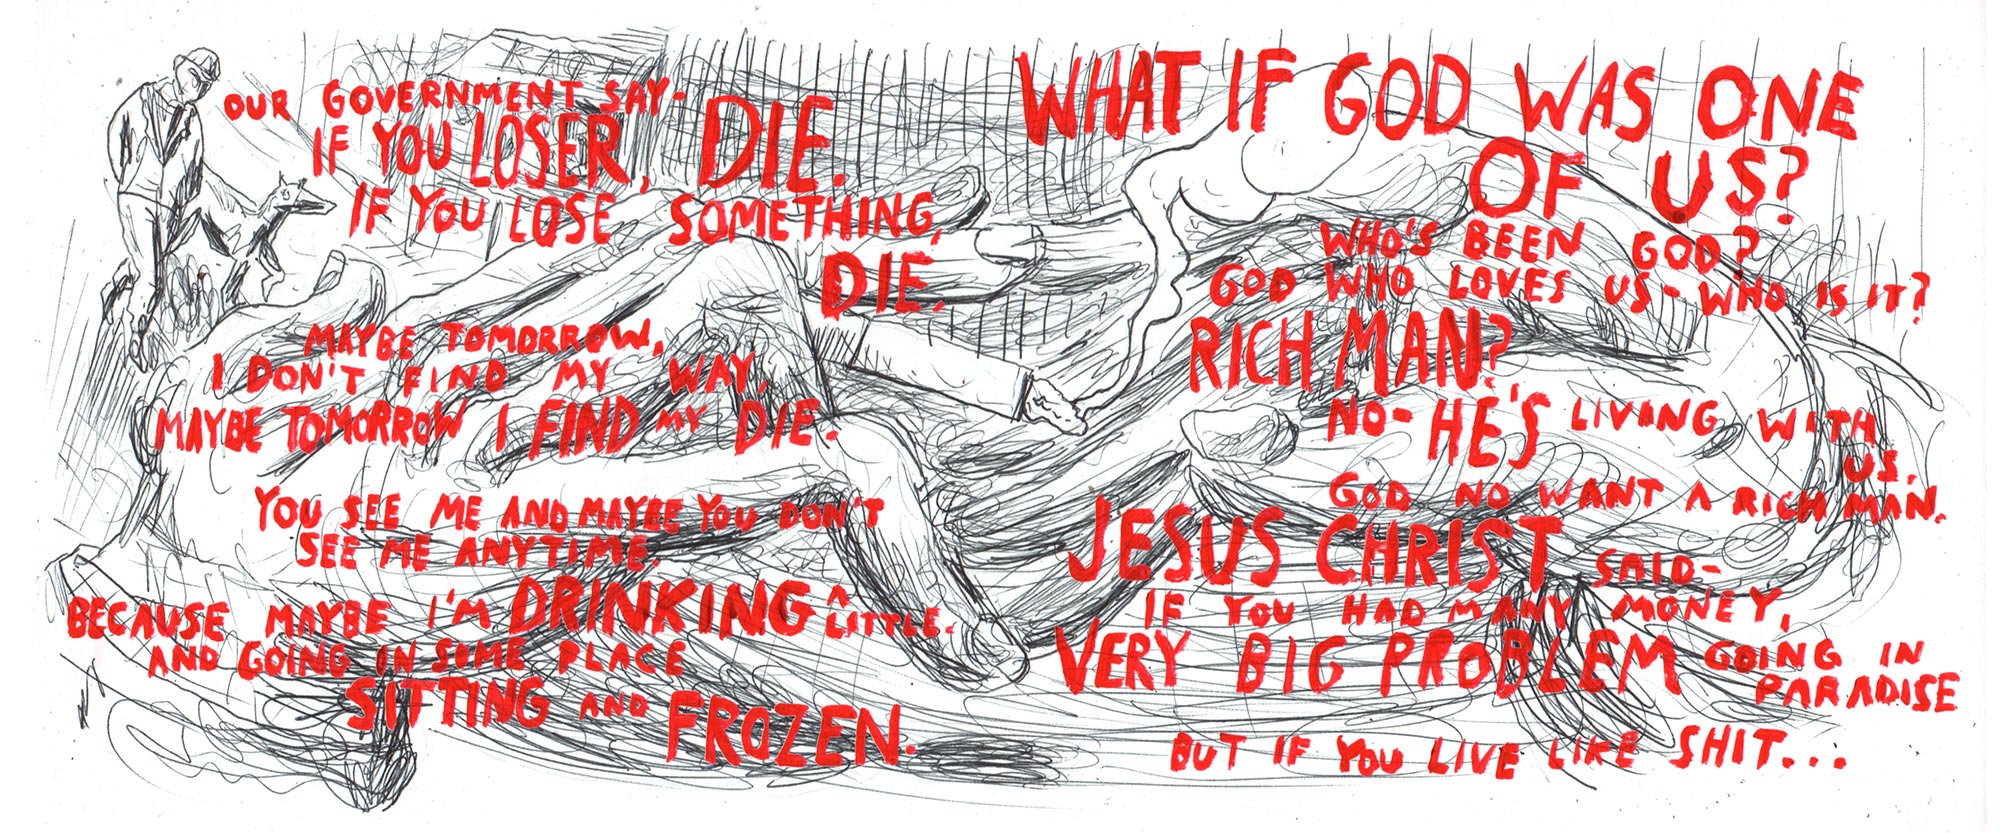 OUR GOVERNMENT SAY-
IF YOU LOSER, DIE.
IF YOU LOSE SOMETHING,
DIE.
MAYBE TOMORROW,
I DON'T FIND MY WAY,
MAYBE TOMORROW I FIND MY DIE.
YOU SEE ME AND MAYBE YOU DON'T
SEE ME ANYTIME.
BECAUSE MAYBE I'M DRINKING A LITTLE.
AND GOING IN SOME PLACE
SITTING AND FROZEN.
WHAT IF GOD WAS ONE
OF US?
WHO'S BEEN GOD?
GOD WHO LOVES US - WHO IS IT?
RICH MAN?
NO- HE'S LIVING WITH
US.
GOD NO WANT A RICH MAN.
JESUS CHRIST SAID-
IF YOU HAD MANY MONEY,
VERY BIG PROBLEM GOING IN
PARADISE
BUT IF YOU LIVE LIKE SHIT...